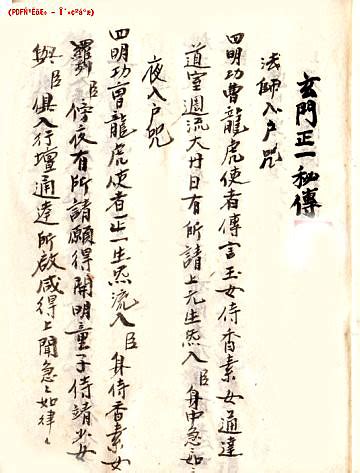 玄門正一秘傳
法師入户咒
四明功曹龍虎使者傳言玉女侍香素女通達
道室週流大廿日有所請上元生炁入臣身中急急如
夜入户咒
四明功曹龍虎使者正一生炁流入臣身侍香素女
羅列臣傍夜有所請願得開明童子侍請少女
與臣俱入行壇通達所啟咸得上聞急〻如律〻